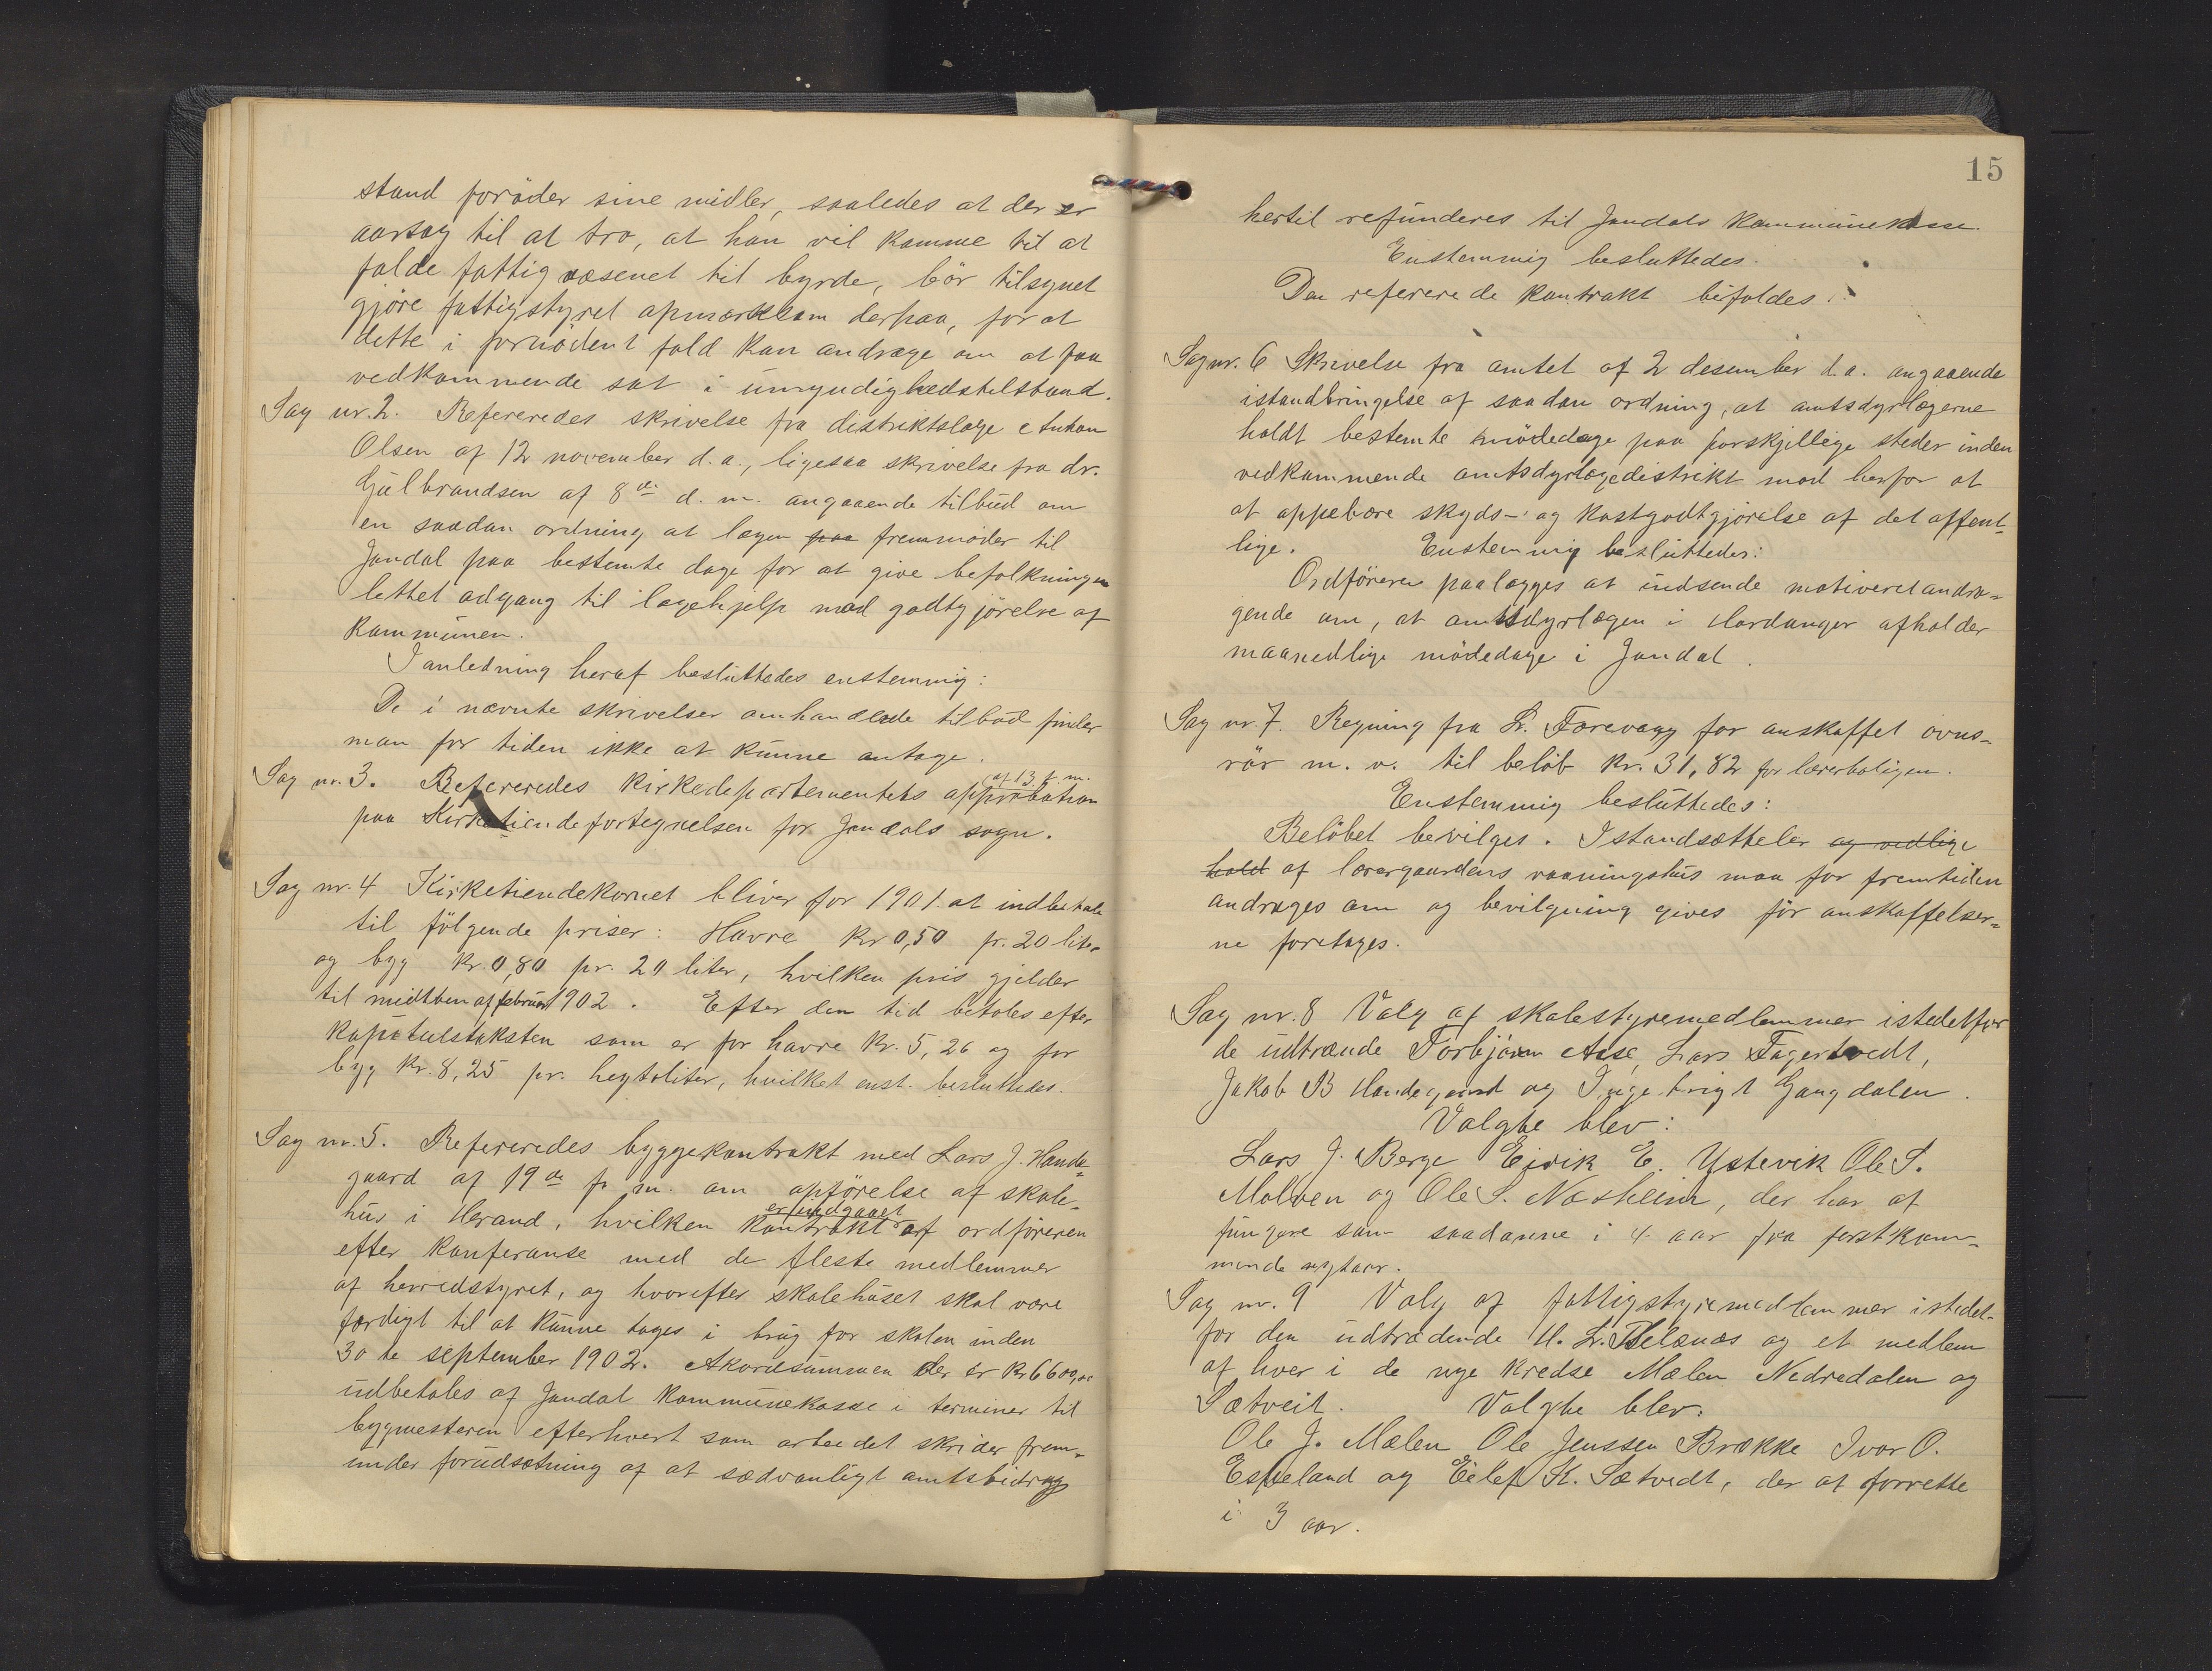 stand foröder sine midler, saaledes at der er
aarsag til at tro, at han vil komme til at
falde fattigvæsenet til byrde, bör tilsynet
gjöre fattigstyret opmærksom derpaa, for at
dette i fornödent fald kan andrage om at faa
vedkommende sat i umyndighedstilstand.
Sag nr. 2. Refereredes skrivelse fra distriktslæge Anton
Olsen af 12 november d.a., ligesaa skrivelse fra dr.
Gulbrandsen af 8de d.m. angaaende tilbud om
en saadan ordning at lægen paa fremmöder til
Jondal paa bestemte dage for at give befolkningen
lettet adgang til lægehjelp mod godtgjörelse af
kommunen.
I anledning heraf besluttedes enstemmig:
De i nævnte skrivelser omhandlede tilbud finder
man for tiden ikke at kunne antage.
Sag nr. 3. Refereredes kirkedepartementets approbation
af 13 f.m.
paa Kirketiendefortegnelsen for Jondals sogn.
Sag nr. 4 Kirketiendekornet bliver for 1901 at indbetale
til fölgende priser: Havre kr 0,50 pr. 20 liter
og byg kr. 0,80 pr. 20 liter, hvilken pris gjelder
til midtben af februar 1902. Efter den tid betales efter
kapitulstaksten som er for havre kr. 5,26 og for
byg kr. 8,25 pr. hegtoliter, hvilket enst. besluttedes.
Sag nr. 5. Refereredes byggekontrakt med Lars J. Hande-
gaard af 19de f. m. om opförelse af skole-
hus i Herand, hvilken kontrakt er indgaaet af ordföreren
efter konferanse med de fleste medlemmer
af herredstyret, og hvorefter skolehuset skal være
færdigt til at kunne tages i brug for skolen inden
30te september 1902. Akordsummen der er kr 6600,00
udbetales af Jondal kommunekasse i terminer til
bygmesteren efterhvert som arbeidet skrider frem-
under forudsætning af at sædvanligt amtsbidrag
15
hertil refunderes til Jondals kommunekasse.
Enstemmig besluttedes.
Den refererede kontrakt bifaldes.
Sag nr. 6 Skrivelse fra amtet af 2 desember d.a. angaaende
istandbringelse af saadan ordning, at amtsdyrlægerne
holdt bestemte mödedage paa forskjellige steder inden
vedkommende amtsdyrlægedistrikt mod herfor at
at oppebære skyds- og kostgodtgjörelse af det offent-
lige. Enstemmig besluttedes:
Ordföreren paalægges at indsende motiveret andra-
gende om, at amtsdyrlægen i Hardanger afholder
maanedlige mödedage i Jondal.
Sag nr. 7. Regning fra L. Torevagg for anskaffet ovns-
rör m. v. til belöb kr. 31,82 for lærerboligen.
Enstemmig besluttedes:
Belöbet bevilges. Istandsættelser og vedlige
hold af lærergaardens vaaningshus maa for fremtiden
andrages om og bevilgning gives för anskaffelser-
ne foretages.
Sag nr. 8 Valg af skolestyremedlemmer istedetfor
de udtrænde Torbjörn Aase, Lars Fagertvedt,
Jakob B Handegaard og Ingebrigt Gangdalen.
Valgte blev:
Lars J. Berge Eirik E. Ystevik Ole S.
Molven og Ole S. Næsheim, der har at
fungere som saadanne i 4 aar fra først kom-
mende nytaar.
Sag nr. 9 Valg af fattigstyremedlemmer istedet-
for den udtrædende H. L. Helænæs og et medlem
af hver i de nye kredse Mælen Nedredalen og
Sætveit. Valgte blev.
Ole J. Mælen Ole Jenssen Brække Ivar O.
Espeland og Eilef K. Sætvedt, der at forrette
i 3 aar.